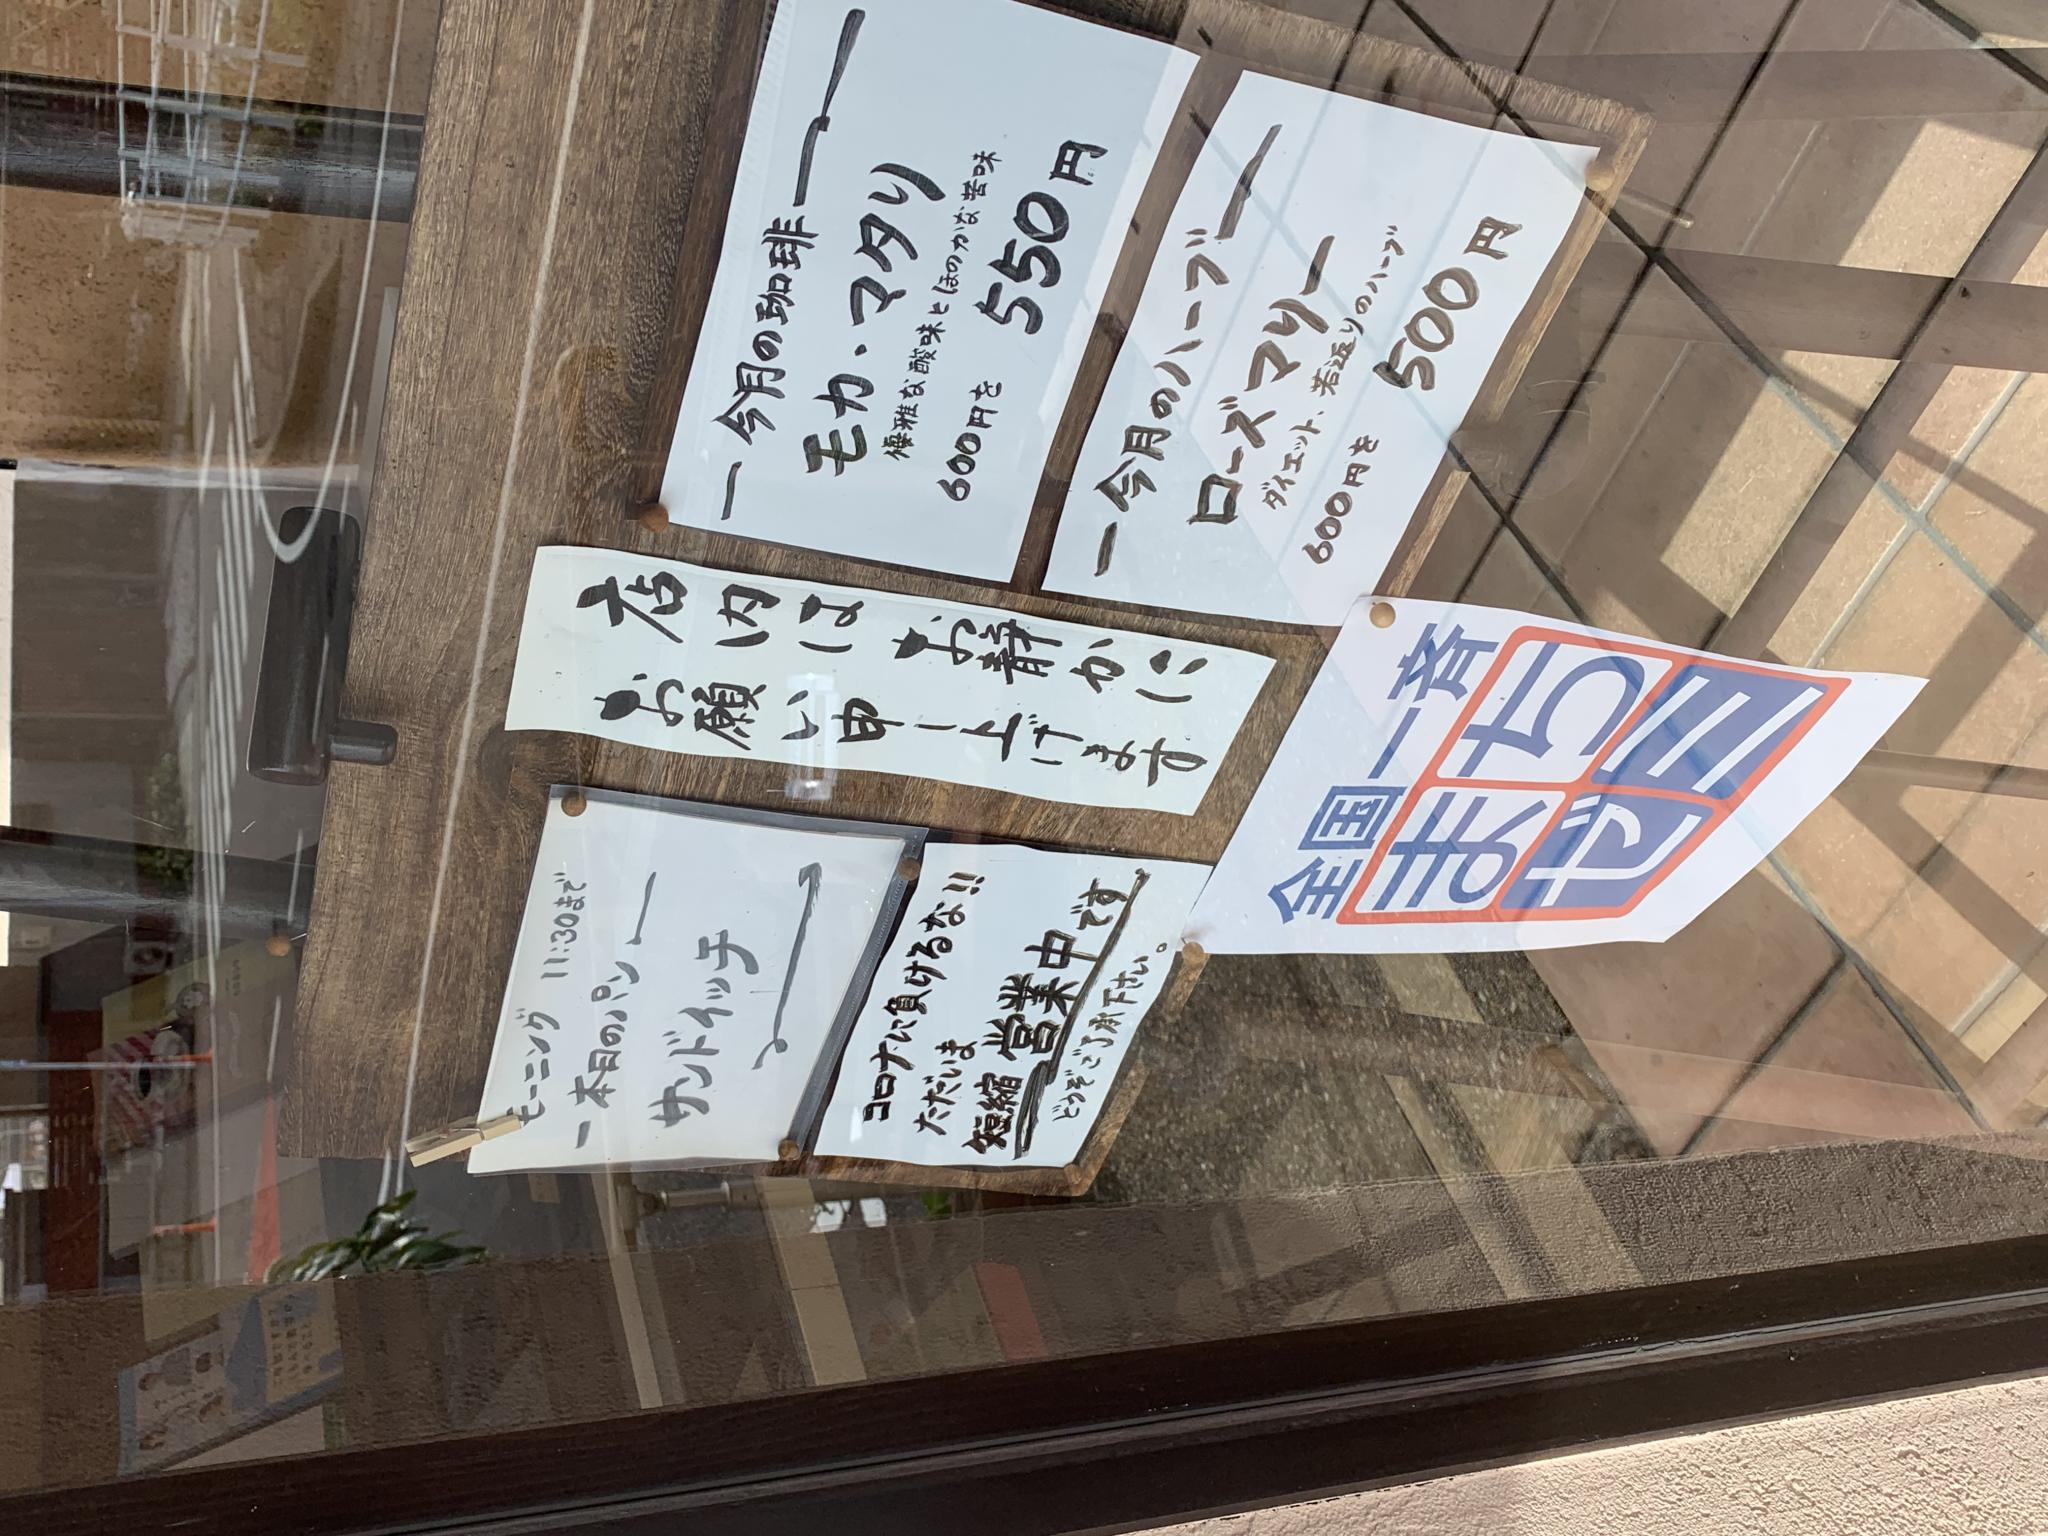 モーニング 11:30まで
ー本日のパンー
サンドイッチ
コロナに負けるな!!
ただいま
短縮営業中です
どうぞご了承下さい。
店内はお静かに
お願い申し上げます
全国一斉
まち
ゼミ
ー今月の珈琲ー
モカ・マタリ
優雅な酸味とほのかな苦味
600円を 550円
ー今月のハーブー
ローズマリー
ダイエット、若返りのハーブ
600円を 500円